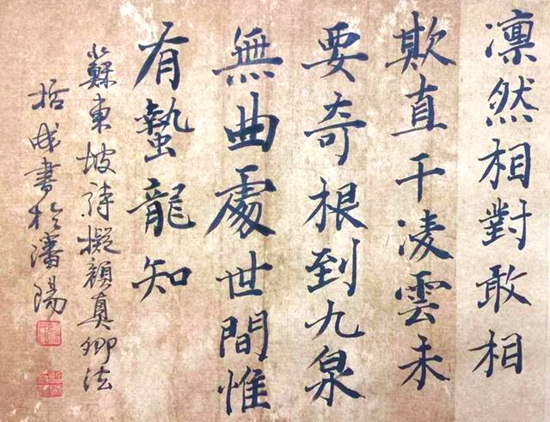 凛然相對敢相
欺直千凌雲未
要奇根到九泉
無曲處世間惟
有蟄龍知
蘇東坡詩擬顏真卿法
哲成書於瀋陽